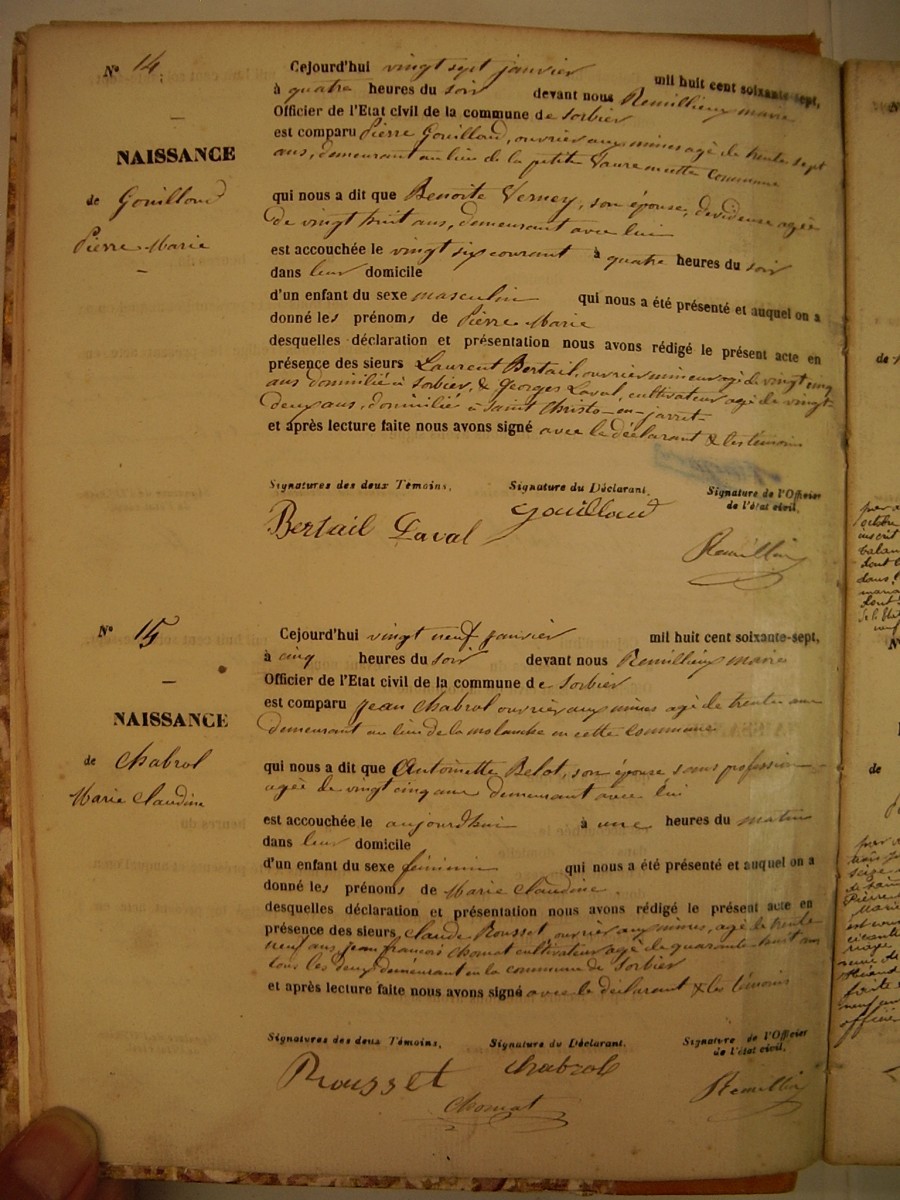 N° 14
Cejourd'hui vingt sept janvier mil huit cent soixante-sept,
à quatre heures du soir devant nous Remillieux maire
Officier de l'Etat civil de la commune de Sorbier
est comparu Pierre Gouilloud, ouvrier aux mines agé de trente sept
ans, demeurant au lieu de la petite Vaure en cette Commune
NAISSANCE
de Gouilloud
Pierre-Marie
qui nous a dit que Benoite Verney, son épouse, devideuse agée
de vingt huit ans, demeurant avec lui
est accouchée le vingt six courant à quatre heures du soir
dans leur domicile
d'un enfant du sexe masculin qui nous a été présenté et auquel on a
donné les prénoms de Pierre-Marie
desquelles déclaration et présentation nous avons rédigé le présent acte en
présence des sieurs Laurent Bertail, ouvrier mineur agé de vingt cinq
ans domicilié à Sorbier, & Georges Laval, cultivateur agé de vingt-
deux ans, domicilié à Saint Christo-en-jarret-
et après lecture faite nous avons signé avec le déclarant & les témoins
Signatures des deux Témoins, Signature du Déclarant, Signature de l'Officier
de l'état civil,
Bertail Laval Gouilloud
Remillieux
N° 15
Cejourd'hui vingt neuf janvier mil huit cent soixante-sept,
à cinq heures du soir devant nous Remillieux maire
Officier de l'Etat civil de la commune de Sorbier
est comparu jean Chabrol ouvrier aux mines agé de trente ans
demeurant au lieu de la molanche en cette Commune
NAISSANCE
de Chabrol
Marie Claudine
qui nous a dit que Antoinette Belot, son épouse sans profession
agée de vingt cinq ans demeurant avec lui
est accouchée le aujourdhui à une heures du matin
dans leur domicile
d'un enfant du sexe féminin qui nous a été présenté et auquel on a
donné les prénoms de Marie Claudine.
desquelles déclaration et présentation nous avons rédigé le présent acte en
présence des sieurs Claude Rousset, ouvrier aux mines, agé de trente
neuf ans, jean françois Chomat cultivateur agé de quarante huit ans
tous les deux demeurant en la commune de Sorbier
et après lecture faite nous avons signé avec le déclarant & les témoins
Signatures des deux Témoins, Signature du Déclarant, Signature de l'Officier
de l'état civil,
Rousset Chabrol Remillieux
Chomat